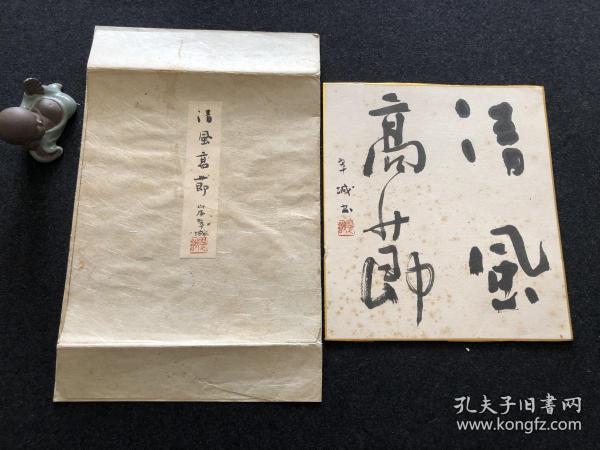 清風高節
清風
高節
孔夫子旧書网
www.kongfz.com